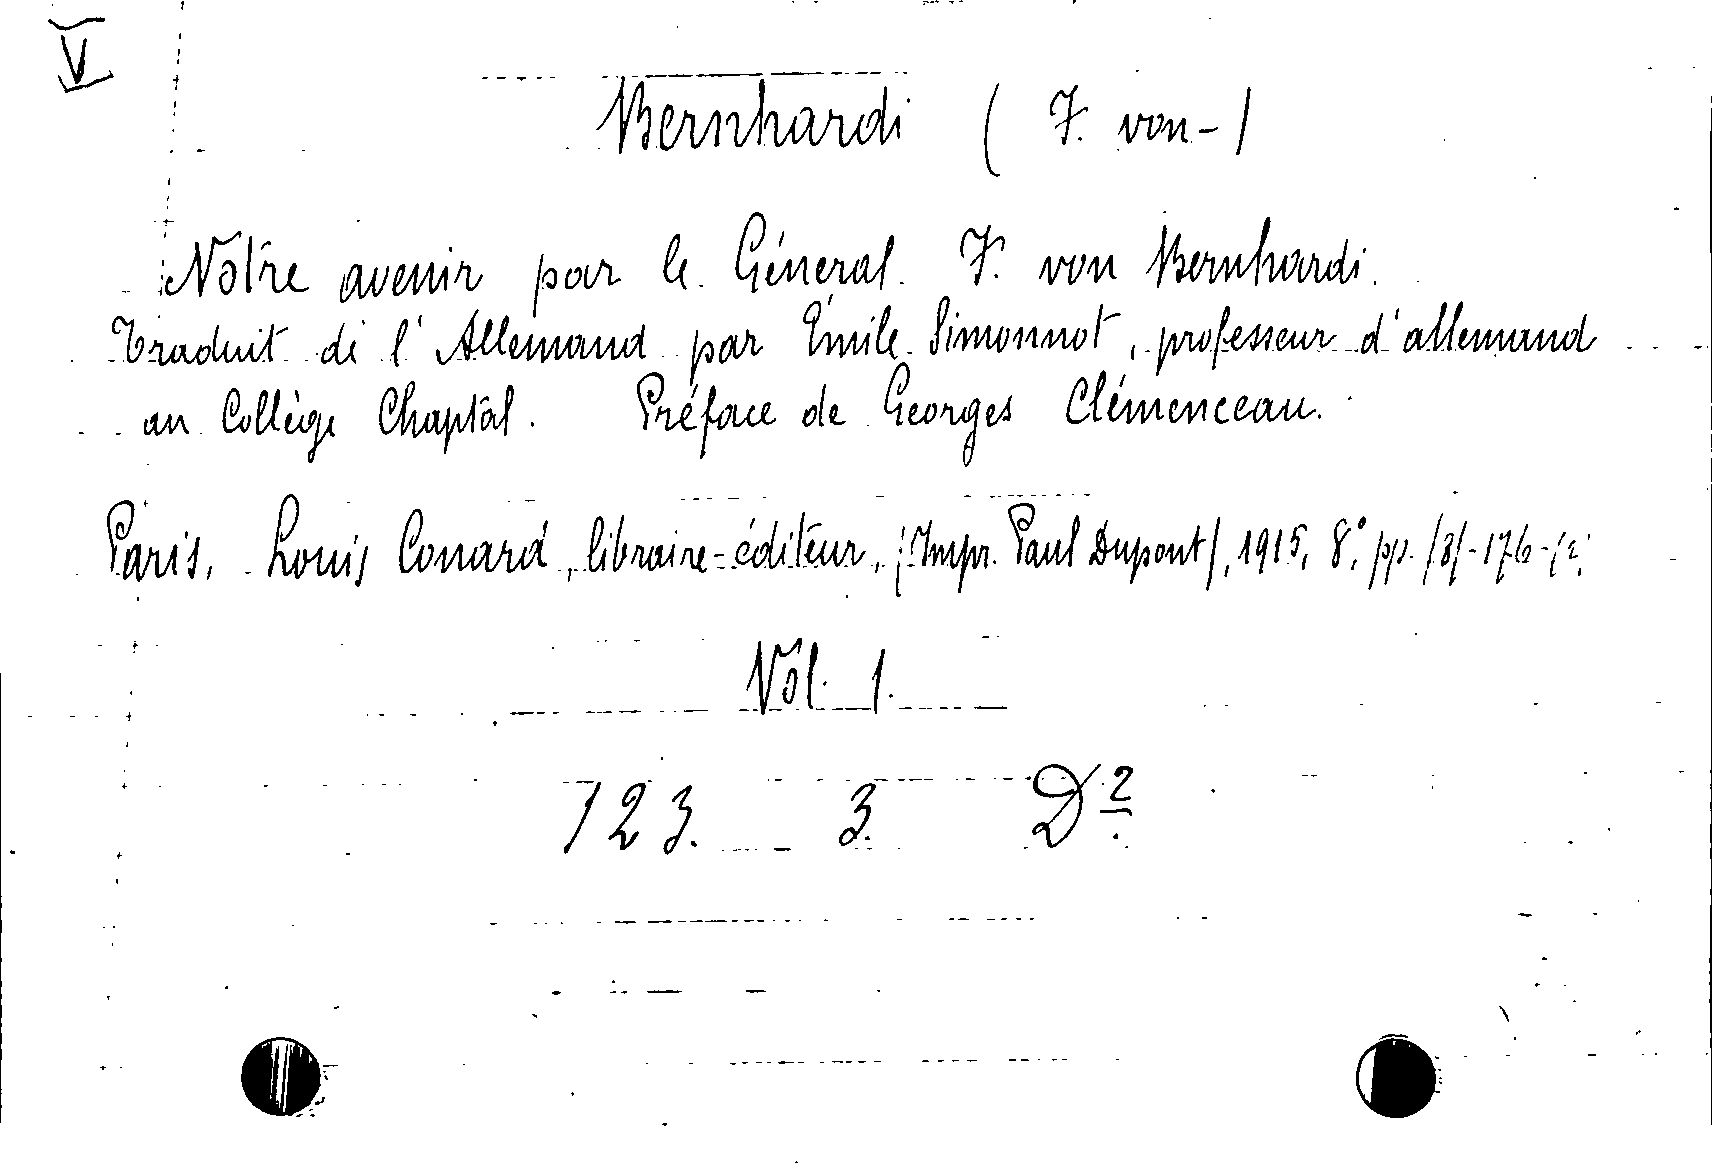 V
Bernhardi ( F. von-)
Notre avenir par le Géneral F. von Bernhardi.
Traduit de l'Allemand par Émile Simonnot, professeur d'allemand
au Collège Chaptal. Préface de Georges Clémenceau.
Paris, Louis Conard, libraire-éditeur, (Impr. Paul Dupont), 1915, 8º, pp. (8)-176-
Vol. 1.
123. 3. D²